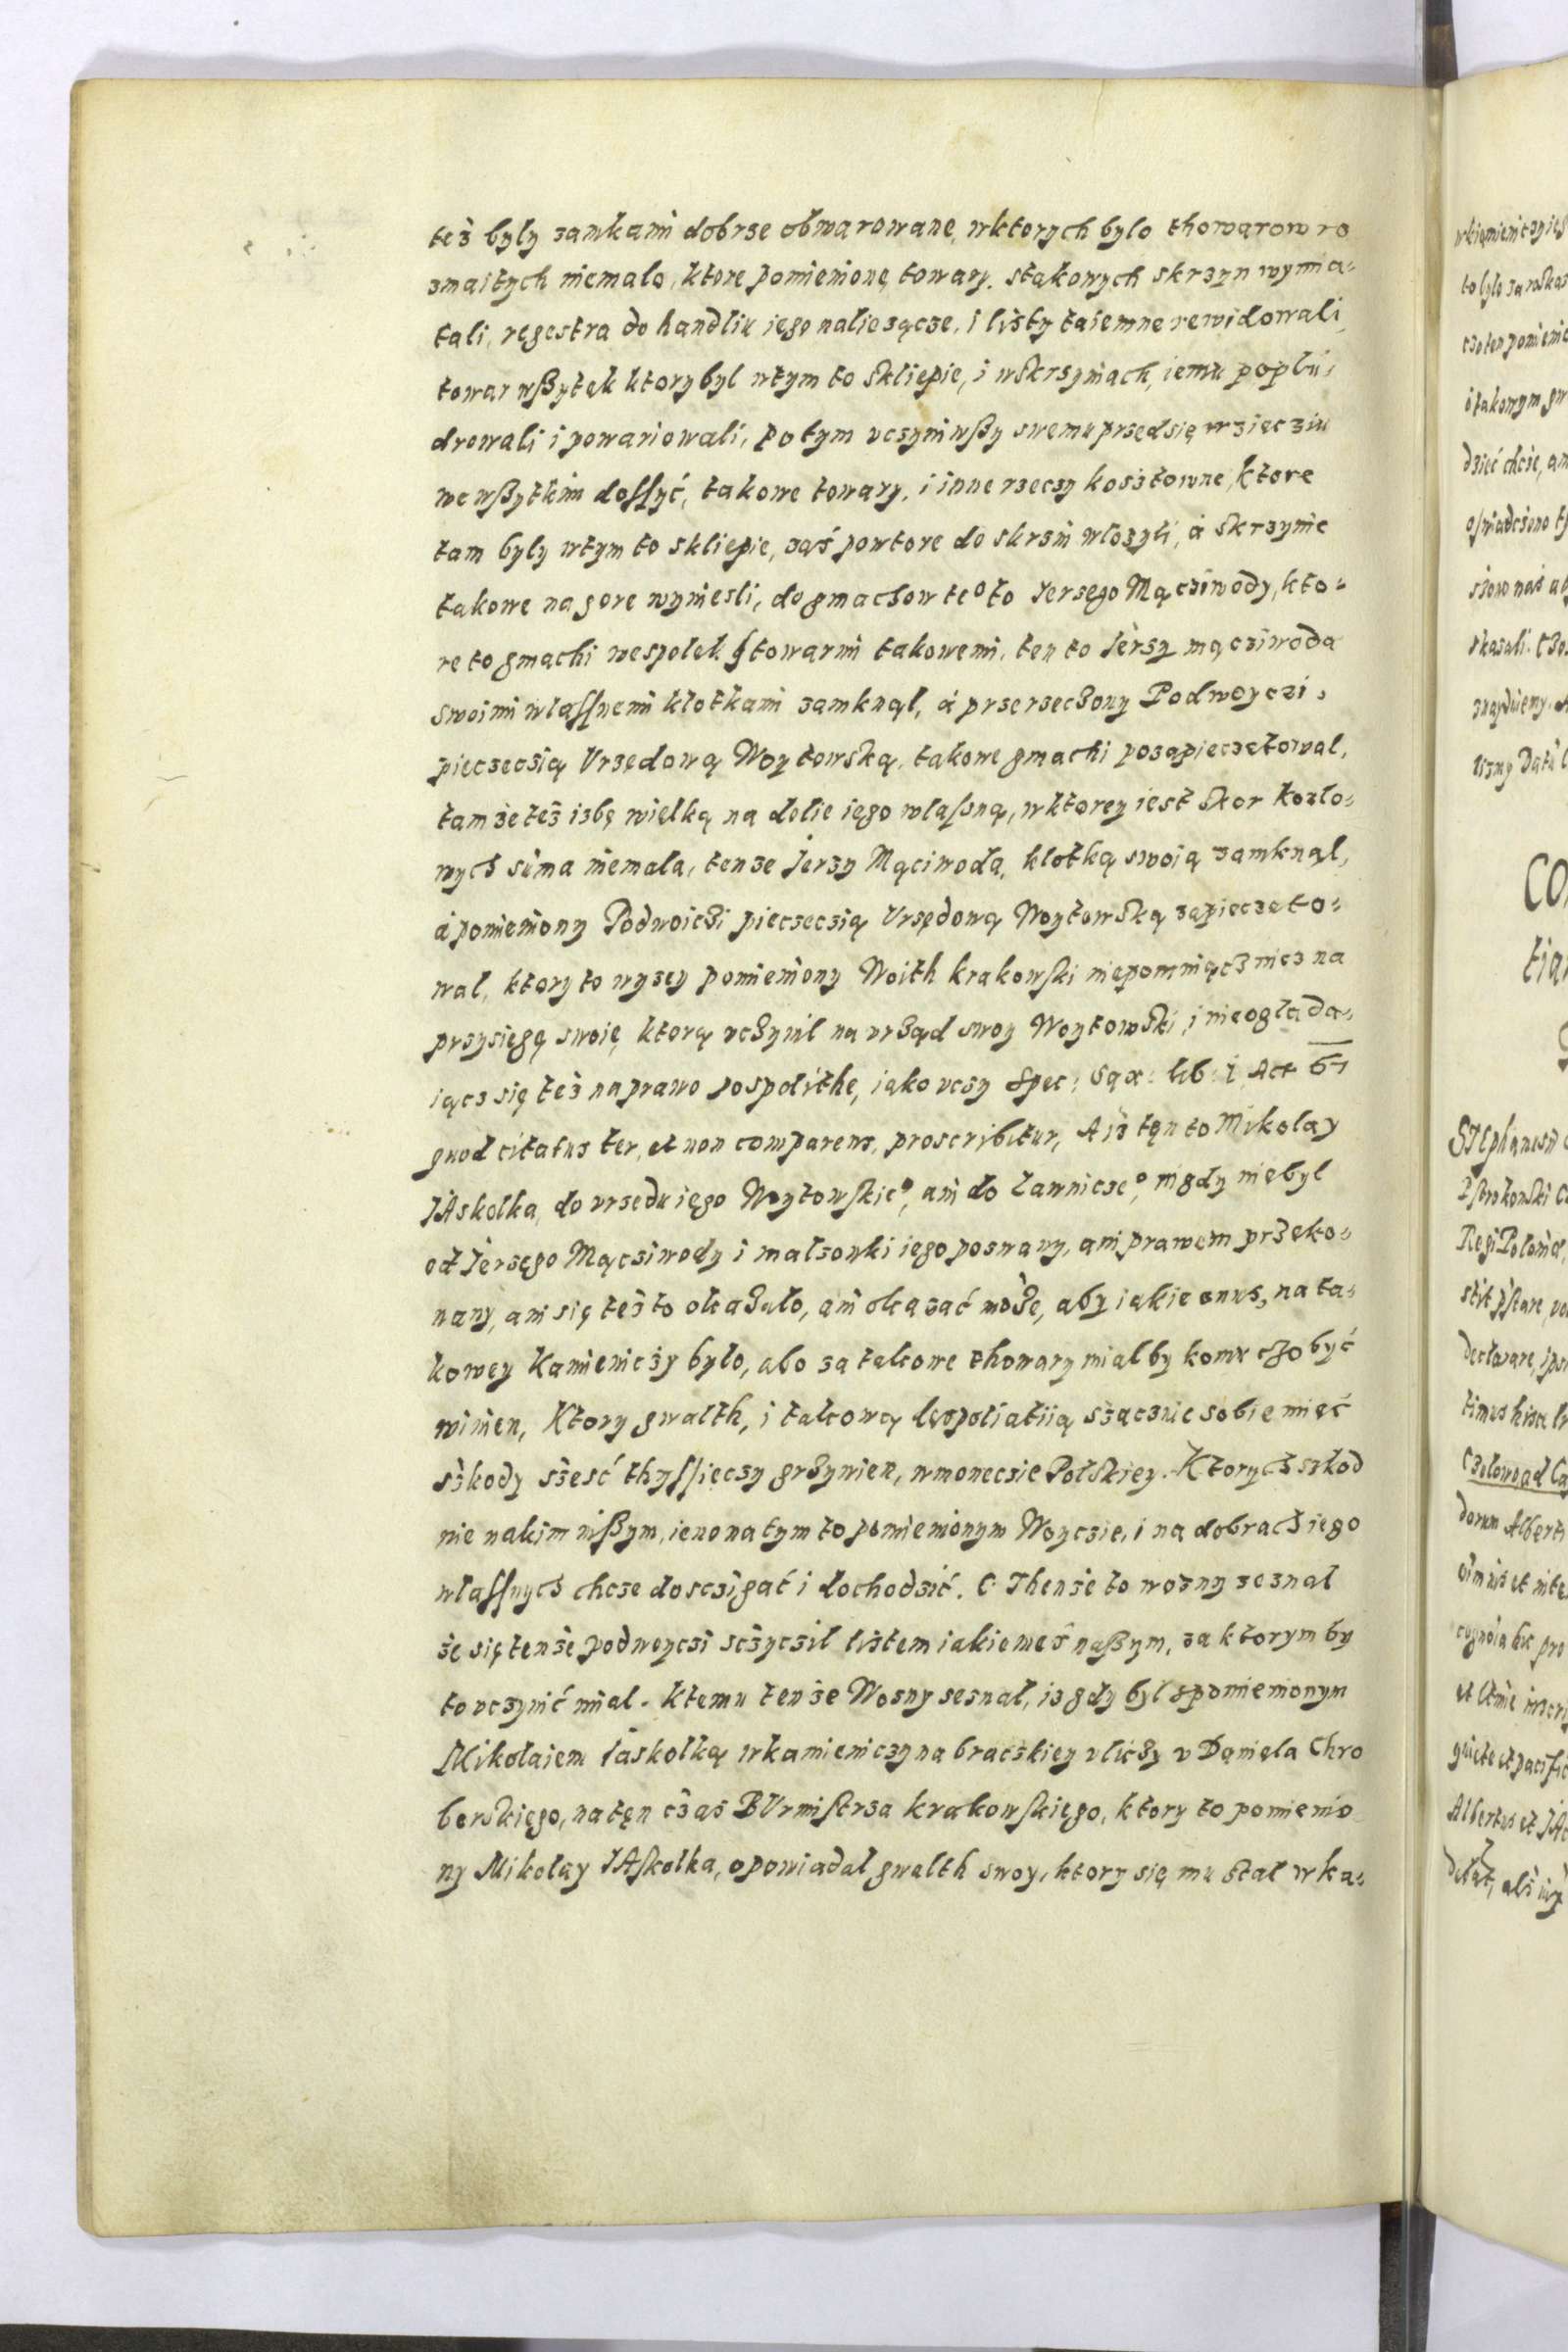 też były zamkami dobrze obwarowane, wktorych bylo thowarow ro
zmaitych niemalo, ktore pomienione towary, stakowych skrzyn wymia=
tali, regestra do handliu iego naliezącze, i listy taiemne rewidowali,
towar wßytek ktory byl wtym to skliepie, i wskrzyniach, iemu poplu=
drowali i powariowali, potym vczyniwßy swemu przedsięwzięcziu
we wßytkim dossyć, takowe towary, i inne rzeczy kosztowne, ktore
tam byly wtym to skliepie, zaś powtore do skrzin wlozyli, á skrzynie
takowe na gore wyniesli, do gmachow te° to Jerzego Mącziwody, kto=
re to gmachi wespolek stowarmi takowemi, ten to Jerzy mącziwoda
swoimi wlassnemi klotkami zamknąl, á przerzeczony Podwoyczi,
pieczeczią Vrzędową Woytowską, takowe gmachi pozapieczetowal,
tamże też izbę wielką na dolie iego wlasną, wktorey iest skor kozlo=
wych suma niemala, tenze Jerzy Mąciwoda, klotką swoią zamknąl,
á pomieniony Podwoiczi pieczeczią Vrzędową Woytowską zapieczeto=
wal, ktory to wyzey pomieniony Woith krakowski niepomniącz nicz na
przysięgę swoię, ktorą vczynil na vrząd swoy Woytowski, i nieogląda=
iącz się też na prawo pospolithe, iako vczy Spec: Sax: lib: 1 Act 67
quod citatus ter, et non comparens, proscribitur, A iż ten to Mikolay
JAskolka, do vrzedu iego Woytowskie°, ani do Lawnicze°, nigdy niebyl
od Jerzego Mącziwody i malzonki iego pozwany, ani prawem przeko=
nany, ani się też to okazało, ani okazać może, aby iakie onus, na ta=
kowey Kamieniczy było, abo za takowe thowary mialby komu czo być
winien, Ktory gwalth, i takową despoliatiią szączuie sobie mieć
szkody sześć thyssięczy grzywien, wmonecie Polskiey. Ktorych szkod
nie nakim inßym, ieno na tym to pomienionym Woyczie, i na dobrach iego
wlassnych chcze dosczigać i dochodzić. C Thenże to wozny zeznal
że się tenże podwoyczi sczyczil listem iakiemeś naßym, za ktorym by
to vczynić mial. Ktemu tenże Wozny zesnal, iz gdy byl spomienionym
Mikolaiem Jaskolką wkamieniczy na brackiey vliczy v Daniela Chro
berskiego, naten czas BUrmistrza krakowskiego, ktory to pomienio
ny Mikolay JAskolka, opowiadal gwalth swoy, ktory się mu stal wka=